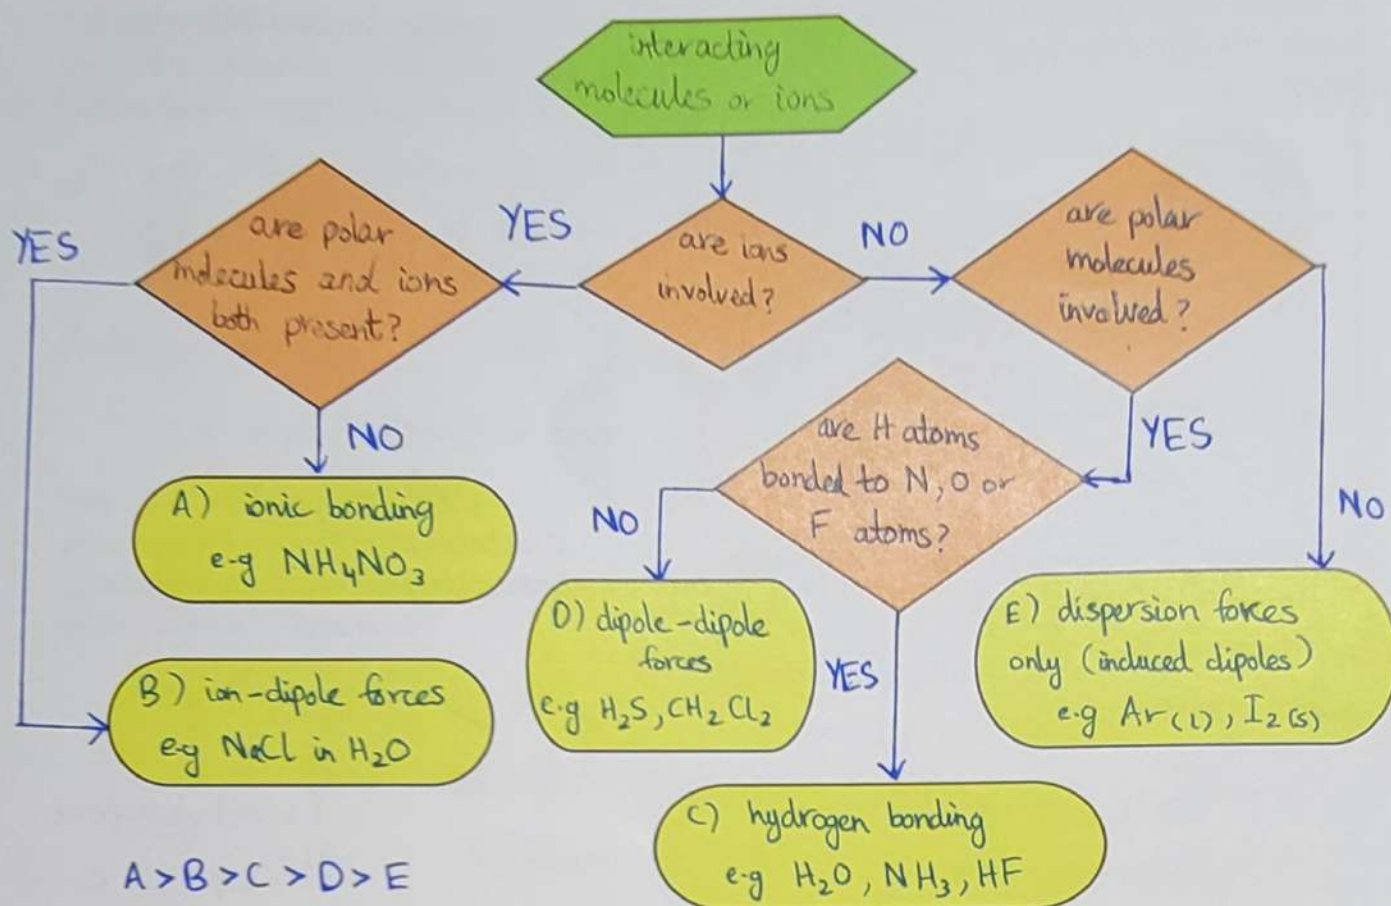 interacting
molecules or ions
are ions
involved?
YES
NO
are polar
molecules and ions
both present?
YES
NO
A) ionic bonding
e-g NH₄NO₃
B) ion-dipole forces
e-g NaCl in H₂O
are polar
molecules
involved?
YES
NO
are H atoms
bonded to N, O or
F atoms?
NO
YES
D) dipole-dipole
forces
e.g H₂S, CH₂Cl₂
E) dispersion forces
only (induced dipoles)
e.g Ar(l), I₂(s)
C) hydrogen bonding
e-g H₂O, NH₃, HF
A > B > C > D > E